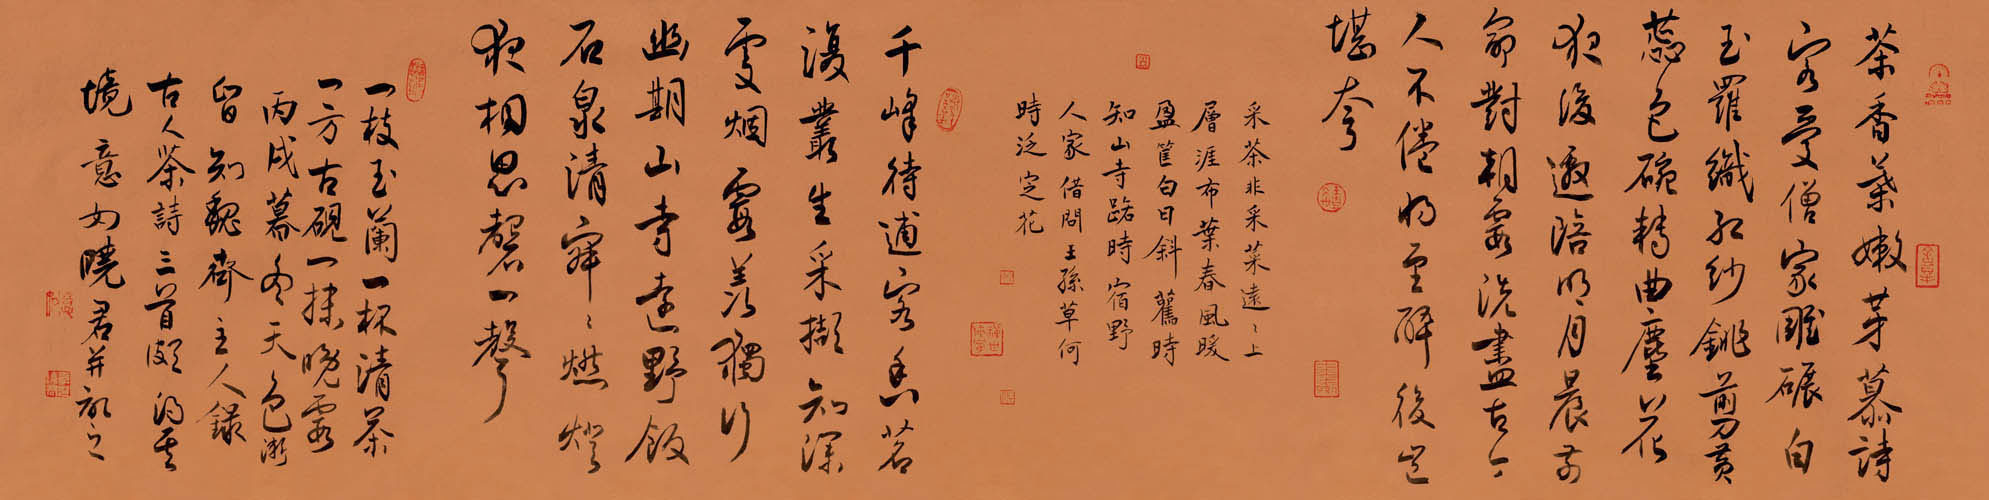 茶香葉嫩芽慕詩
客愛僧家雕碾白
玉羅織紅紗銚煎黃
蕊色碗轉曲塵花
夜後邀陪明月晨前
命對朝霞洗盡古今
人不倦將至醉後豈
堪夸
采茶非采菜遠〻上
層涯布葉春風暖
盈筐白日斜舊時
知山寺路時宿野
人家借問王孫草何
時泛花
千峰待逋客香茗
復叢生采擷知深
處烟霞羨獨行
幽期山寺遠野飯
石泉清寂〻燃燈
夜相思磬一聲
一枝玉蘭一杯清茶
一方古硯一抹晚霞
丙戌暮冬天色漸
昏知魏齋主人錄
古人茶詩三首頗得其
境意如曉君并記之